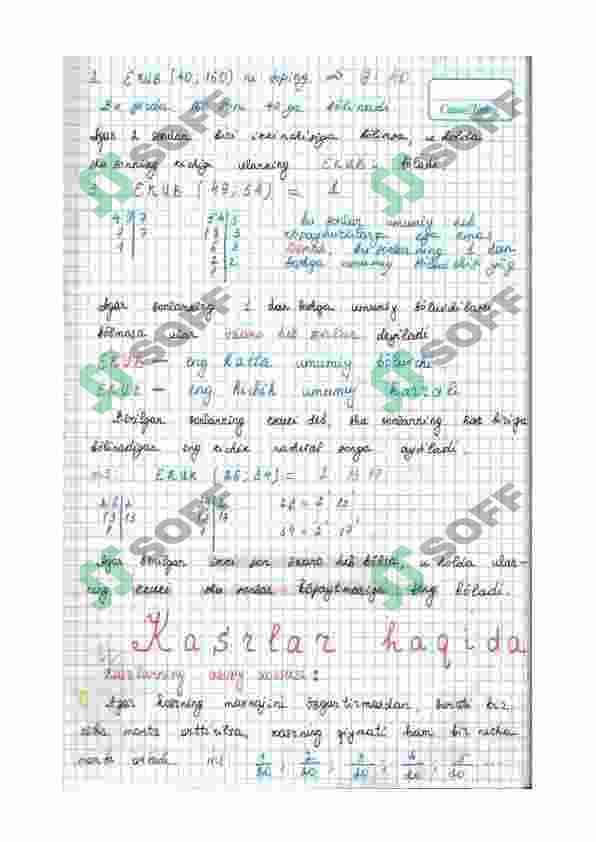 1. EKUB (40; 160) ni toping
Bu yerda 160 soni 40 ga bo'linadi
Agar 2 sondan biri ikkinchisiga bo'linsa, u holda
shu sonning kichigi ularning EKUBi bo'ladi.
EKUB (49, 54) = 1
bu sonlar umumiy tub
ko'paytuvchilarga ega emas,
Demak, bu sonlarning 1 dan
boshqa umumiy yo'q
Agar sonlarning 1 dan boshqa umumiy bo'luvchilari
bo'lmasa ular o'zaro tub sonlar deyiladi
EKUB — eng katta umumiy bo'luvchi
EKUK — eng kichik umumiy karrali
Berilgan sonlarning EKUKi deb, shu sonlarning har biriga
bo'linadigan eng kichik natural songa aytiladi.
EKUK (26, 34) = 2 13 17
26 2
13 13
1
34 = 2 17
Agar berilgan ikki son o'zaro tub bo'lsa, u holda ular-
ning EKUKi shu sonlar ko'paytmasiga teng bo'ladi.
Kasrlar haqida
Kasrlarning asosiy xossasi:
Agar kasrning maxrajini o'zgartirmasdan, surati bir
necha marta orttirilsa, kasrning qiymati ham bir necha
marta ortadi.
SOFF
SOFF
SOFF
SOFF
SOFF
SOFF